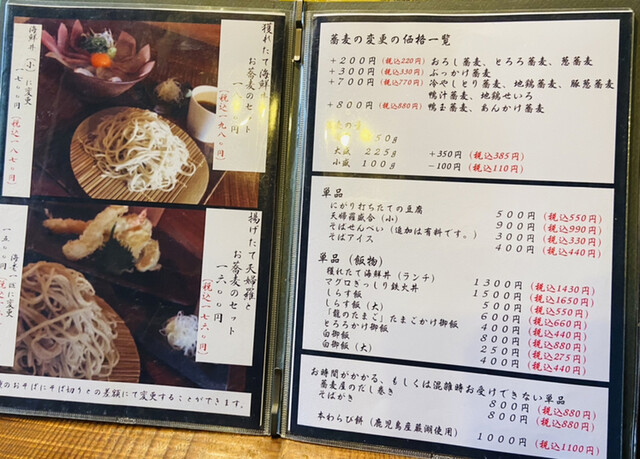 獲れたて海鮮丼
お蕎麦のセット
(税込一九八〇円)
海鮮丼(小)に変更
一七〇〇円
(税込一八七〇円)
揚げたて天婦羅と
お蕎麦のセット
一六〇〇円
(税込一七六〇円)
のおそばにそば切りとの差額にて変更することができます。
蕎麦の変更の価格一覧
+200円(税込220円) おろし蕎麦、とろろ蕎麦、葱蕎麦
+300円(税込330円) ぶっかけ蕎麦
+700円(税込770円) 冷やしとり蕎麦、地鶏蕎麦、豚葱蕎麦
鴨汁蕎麦、地鶏せいろ
+800円(税込880円) 鴨玉蕎麦、あんかけ蕎麦
50g
大盛 225g +350円(税込385円)
小盛 100g -100円(税込110円)
単品
にがり打ちたての豆腐 500円(税込550円)
天婦羅盛合(小) 900円(税込990円)
そばせんべい(追加は有料です。) 300円(税込330円)
そばアイス 400円(税込440円)
単品(飯物)
獲れたて海鮮丼(ランチ) 1300円(税込1430円)
マグロぎっしり鉄火丼 1500円(税込1650円)
しらす飯 500円(税込550円)
しらす飯(大) 600円(税込660円)
「龍のたまご」たまごかけ御飯 400円(税込440円)
とろろかけ御飯 800円(税込880円)
白御飯 250円(税込275円)
白御飯(大) 400円(税込440円)
お時間がかかる、もしくは混雑時お受けできない単品
蕎麦屋のだし巻き 800円(税込880円)
そばがき 800円(税込880円)
本わらび餅(鹿児島産蕨粉使用) 1000円(税込1100円)